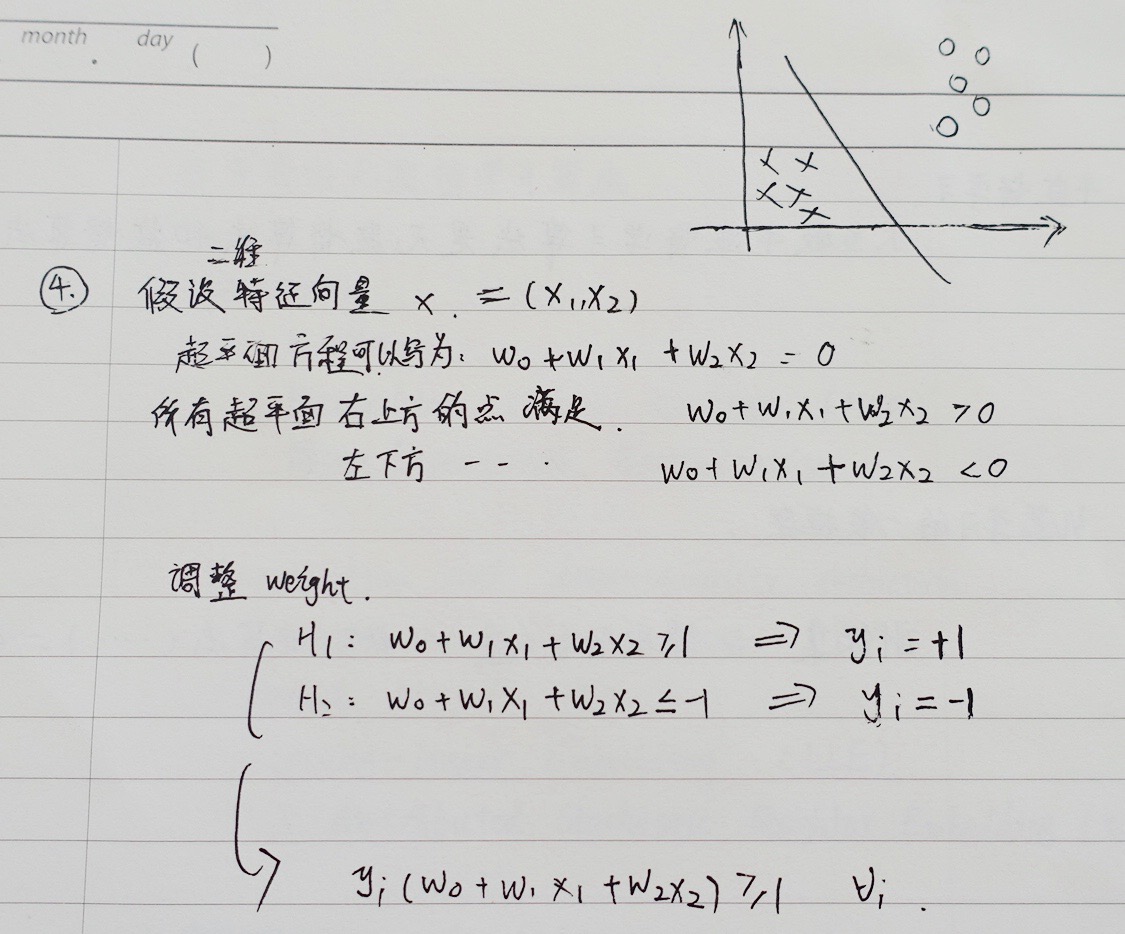 month day ( )
二维
④ 假设特征向量 x = (x₁,x₂)
超平面方程可以写为: w₀+w₁x₁+w₂x₂=0
所有超平面右上方的点满足. w₀+w₁x₁+w₂x₂>0
左下方 --· w₀+w₁x₁+w₂x₂<0
调整 weight.
H₁: w₀+w₁x₁+w₂x₂≥1 ⇒ yᵢ=+1
H₂: w₀+w₁x₁+w₂x₂≤-1 ⇒ yᵢ=-1
yᵢ(w₀+w₁x₁+w₂x₂)≥1 ∀ᵢ.